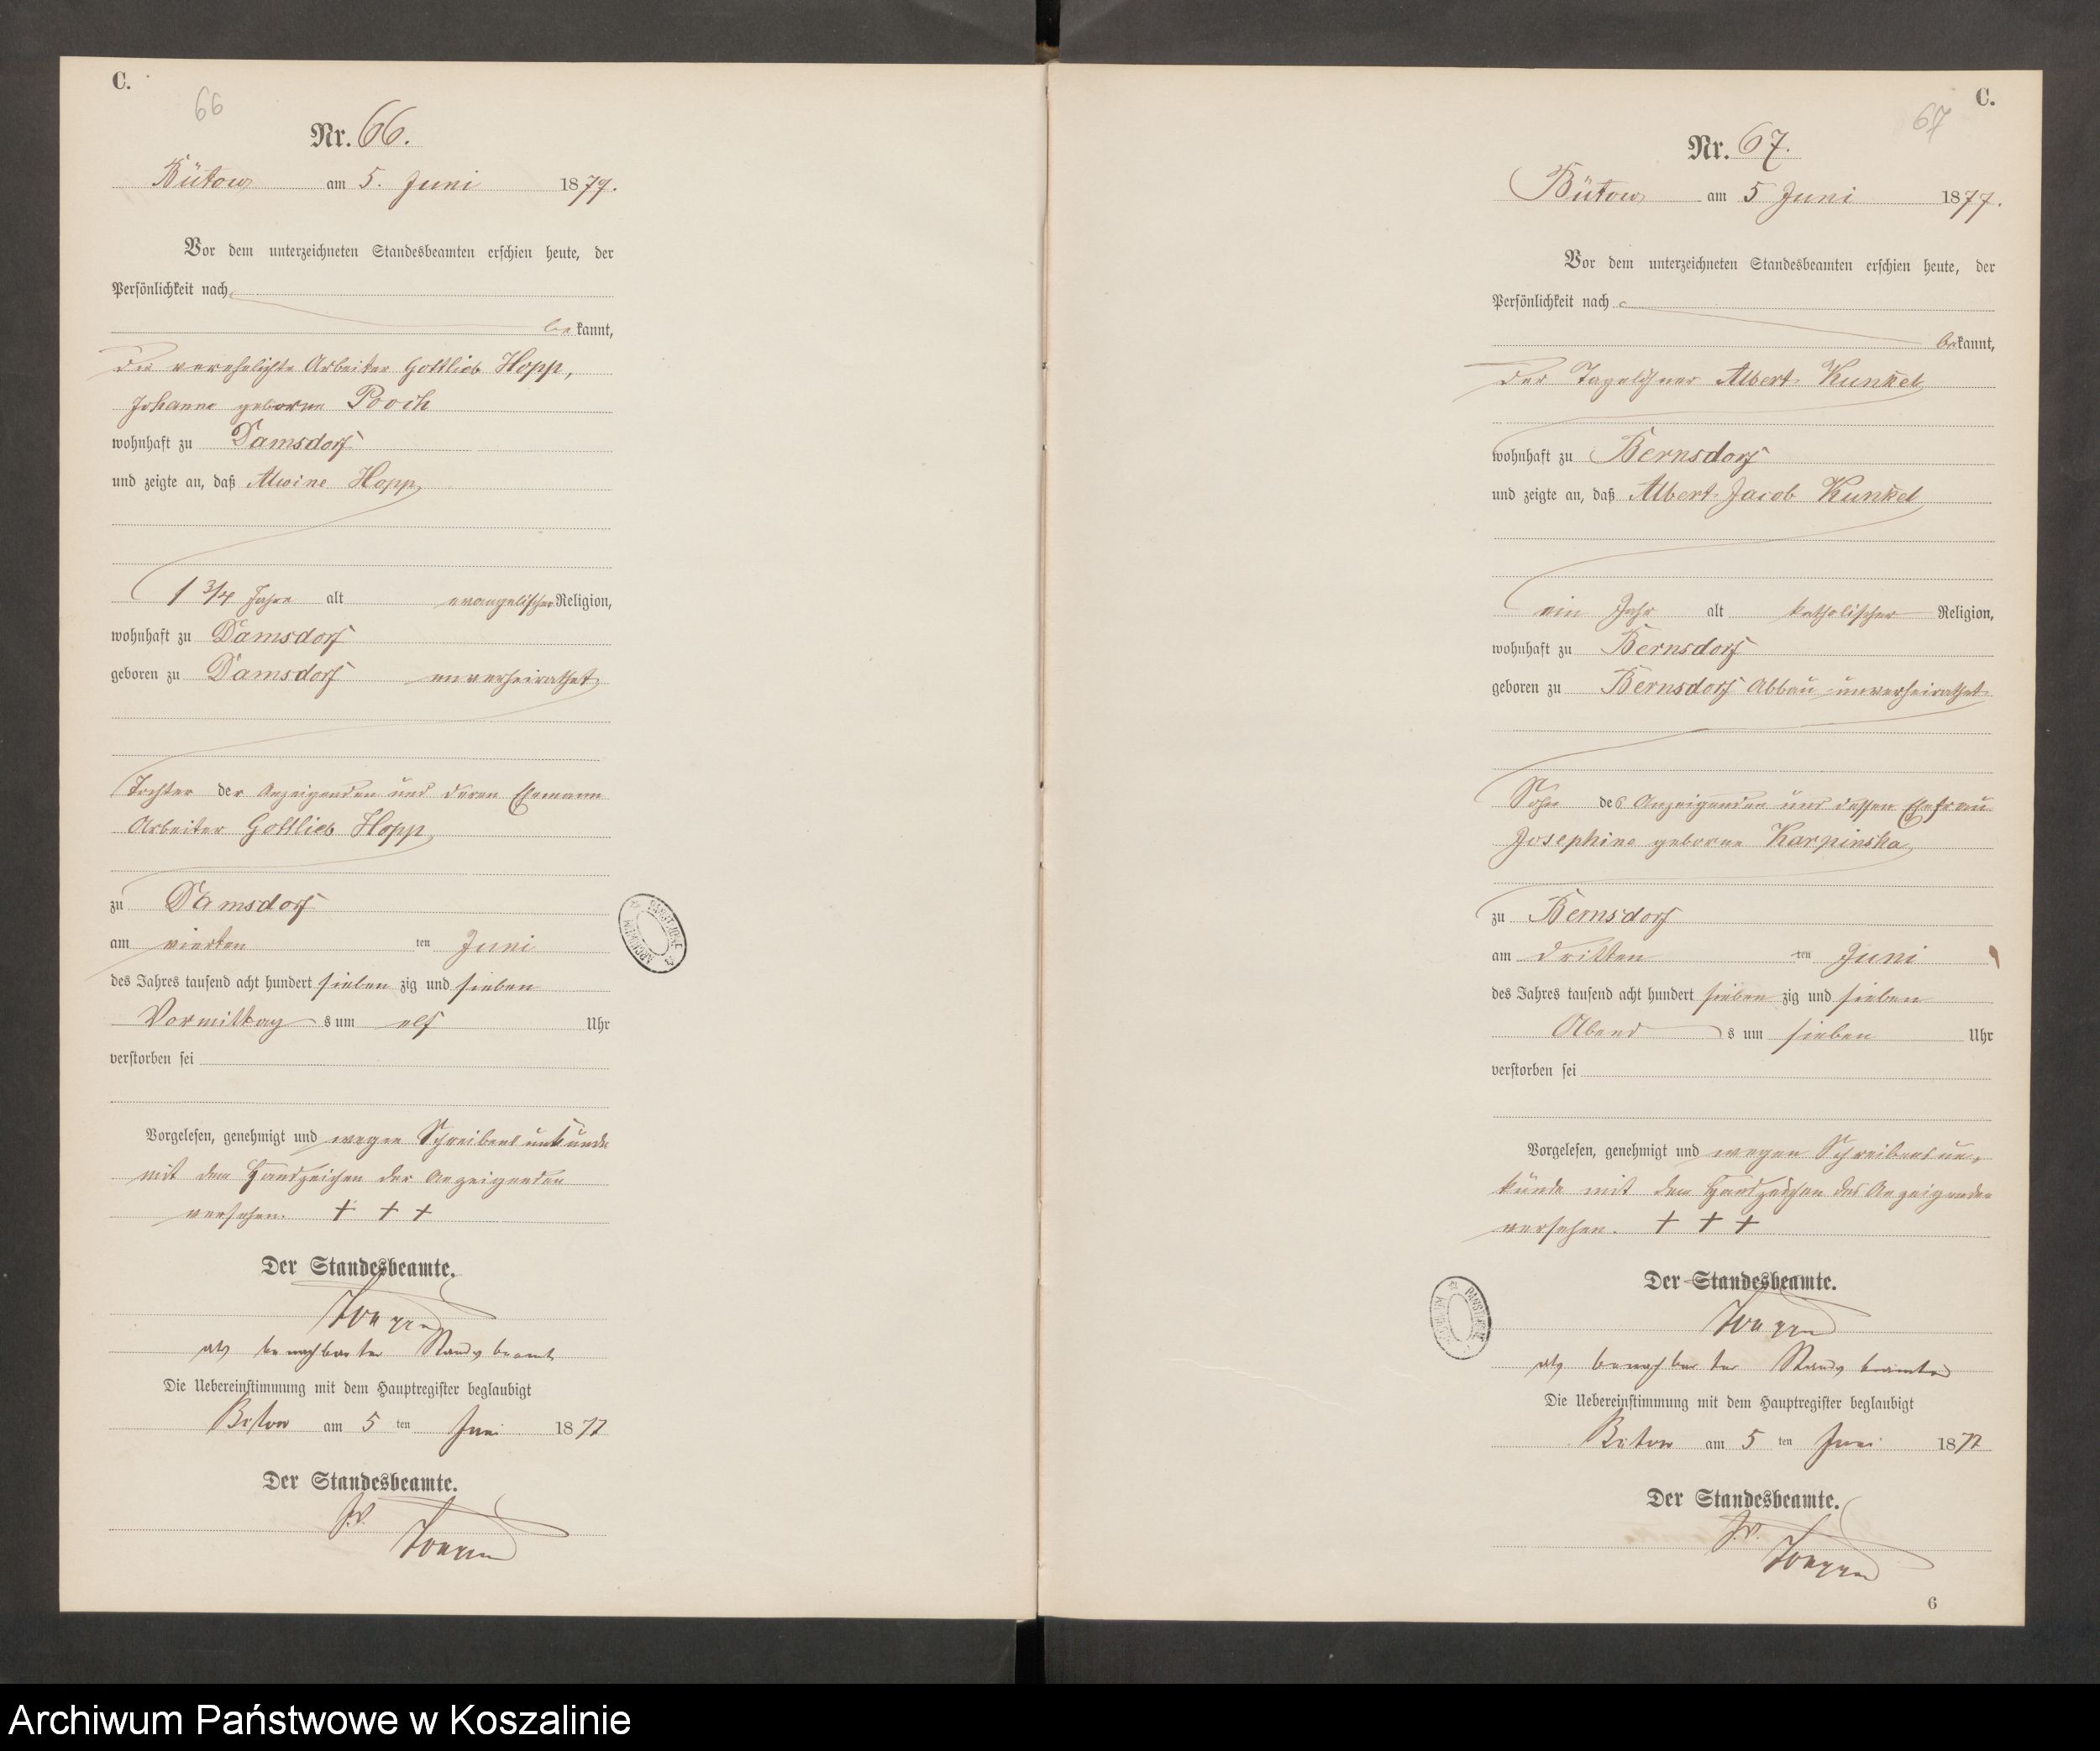 C.
66
Nr. 66.
Bütow am 5. Juni 1877.
Vor dem unterzeichneten Standesbeamten erschien heute, der
Persönlichkeit nach
bekannt,
die verehelichte Arbeiter Gottlieb Hopp,
Johanne geborne Pooch
wohnhaft zu Damsdorf
und zeigte an, daß Alwine Hopp
1 3/4 Jahre alt evangelischer Religion,
wohnhaft zu Damsdorf
geboren zu Damsdorf unverheirathet
Tochter der Anzeigenden und deren Ehemann
Arbeiter Gottlieb Hopp
zu Damsdorf
am vierten ten Juni
des Jahres tausend acht hundert sieben zig und sieben
Vormittag s um elf Uhr
verstorben sei
Vorgelesen, genehmigt und wegen Schreibensunkunde
mit dem Handzeichen der Anzeigenden
versehen. + + +
Der Standesbeamte.
als benachbarter Standesbeamter
Die Uebereinstimmung mit dem Hauptregister beglaubigt
Bütow am 5 ten Juni 1877
Der Standesbeamte.
J.V.
ARCHIWUM PAŃSTWOWE
C.
67
Nr. 67.
Bütow am 5 Juni 1877.
Vor dem unterzeichneten Standesbeamten erschien heute, der
Persönlichkeit nach
bekannt,
der Tagelöhner Albert Kunkel
wohnhaft zu Bernsdorf
und zeigte an, daß Albert Jacob Kunkel
ein Jahr alt katholischer Religion,
wohnhaft zu Bernsdorf
geboren zu Bernsdorf Abbau unverheirathet
Sohn des Anzeigenden und dessen Ehefrau
Josephine geborne Karpinska
zu Bernsdorf
am dritten ten Juni
des Jahres tausend acht hundert sieben zig und sieben
Abend s um sieben Uhr
verstorben sei
Vorgelesen, genehmigt und wegen Schreibensun-
kunde mit dem Handzeichen des Anzeigenden
versehen. + + +
Der Standesbeamte.
als benachbarter Standesbeamter
Die Uebereinstimmung mit dem Hauptregister beglaubigt
Bütow am 5 ten Juni 1877
Der Standesbeamte.
J.V.
ARCHIWUM PAŃSTWOWE
6
Archiwum Państwowe w Koszalinie